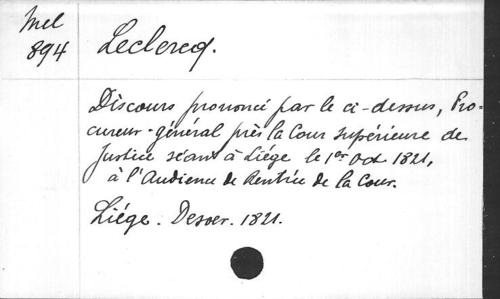 Mel
894
Leclercq.
Discours prononcé par le ci-dessus, Pro-
cureur-général près la Cour supérieure de
Justice séant à Liége le 1er Oct 1821,
à l'Audience de Rentrée de la Cour.
Liége. Desoer. 1821.